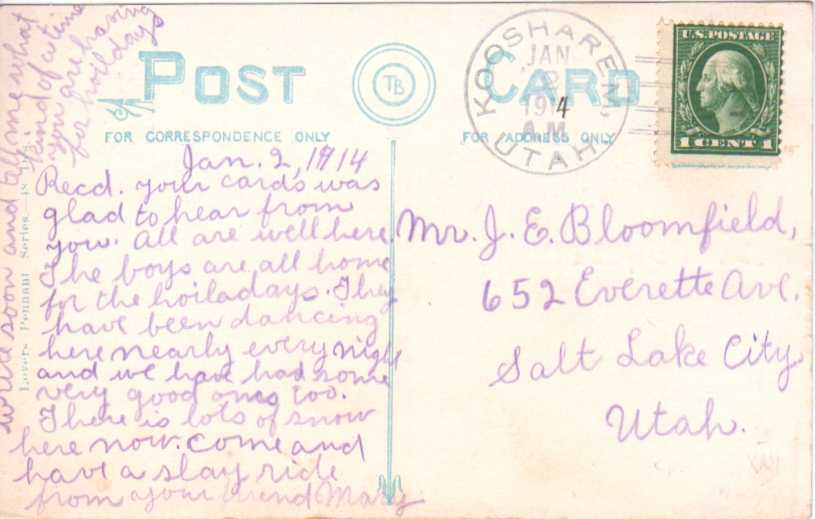 POST CARD
TB
FOR CORRESPONDENCE ONLY
FOR ADDRESS ONLY
KOOSHAREM,
UTAH
JAN
2
19 4
A.M.
U.S. POSTAGE
1 CENT 1
Jan. 2, 1914
Recd. your cards was
glad to hear from
you. All are well here.
The boys are all home
for the hoiladays. They
have been dancing
here nearly every night
and we have had some
very good ones too.
There is lots of snow
here now. Come and
have a slay ride
from your friend Mary
write soon and tell me what
kind of a time
you are having
for hoildays
Mr. J. E. Bloomfield,
652 Everette Ave.
Salt Lake City
Utah.
Lovers Pennant Series